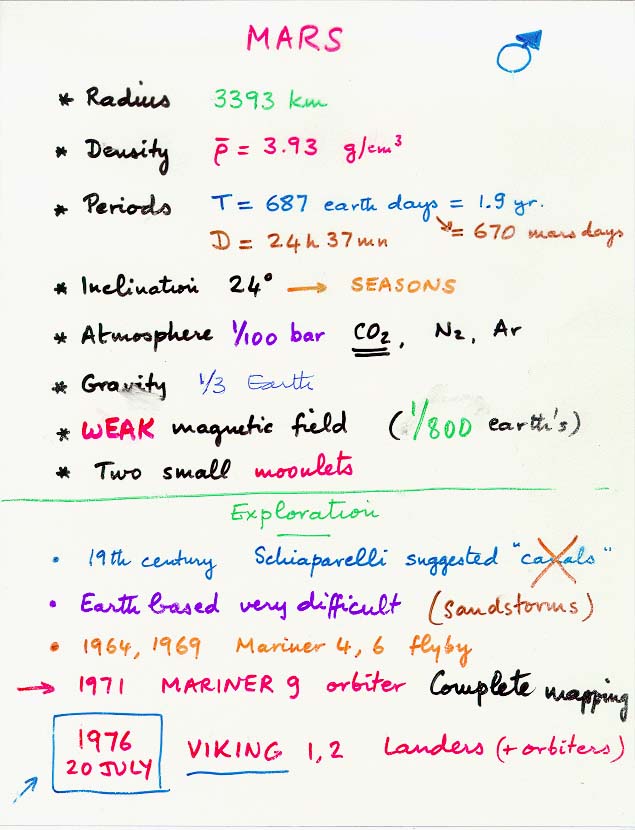 MARS
* Radius 3393 km
* Density ρ̄ = 3.93 g/cm³
* Periods T = 687 earth days = 1.9 yr.
D = 24h 37mn = 670 mars days
* Inclination 24° → SEASONS
* Atmosphere 1/100 bar CO₂, N₂, Ar
* Gravity 1/3 Earth
* WEAK magnetic field (1/800 earth's)
* Two small moonlets
Exploration
• 19th century Schiaparelli suggested "canals"
• Earth based very difficult (Sandstorms)
• 1964, 1969 Mariner 4, 6 flyby
→ 1971 MARINER 9 orbiter Complete mapping
1976
20 JULY VIKING 1, 2 Landers (+ orbiters)